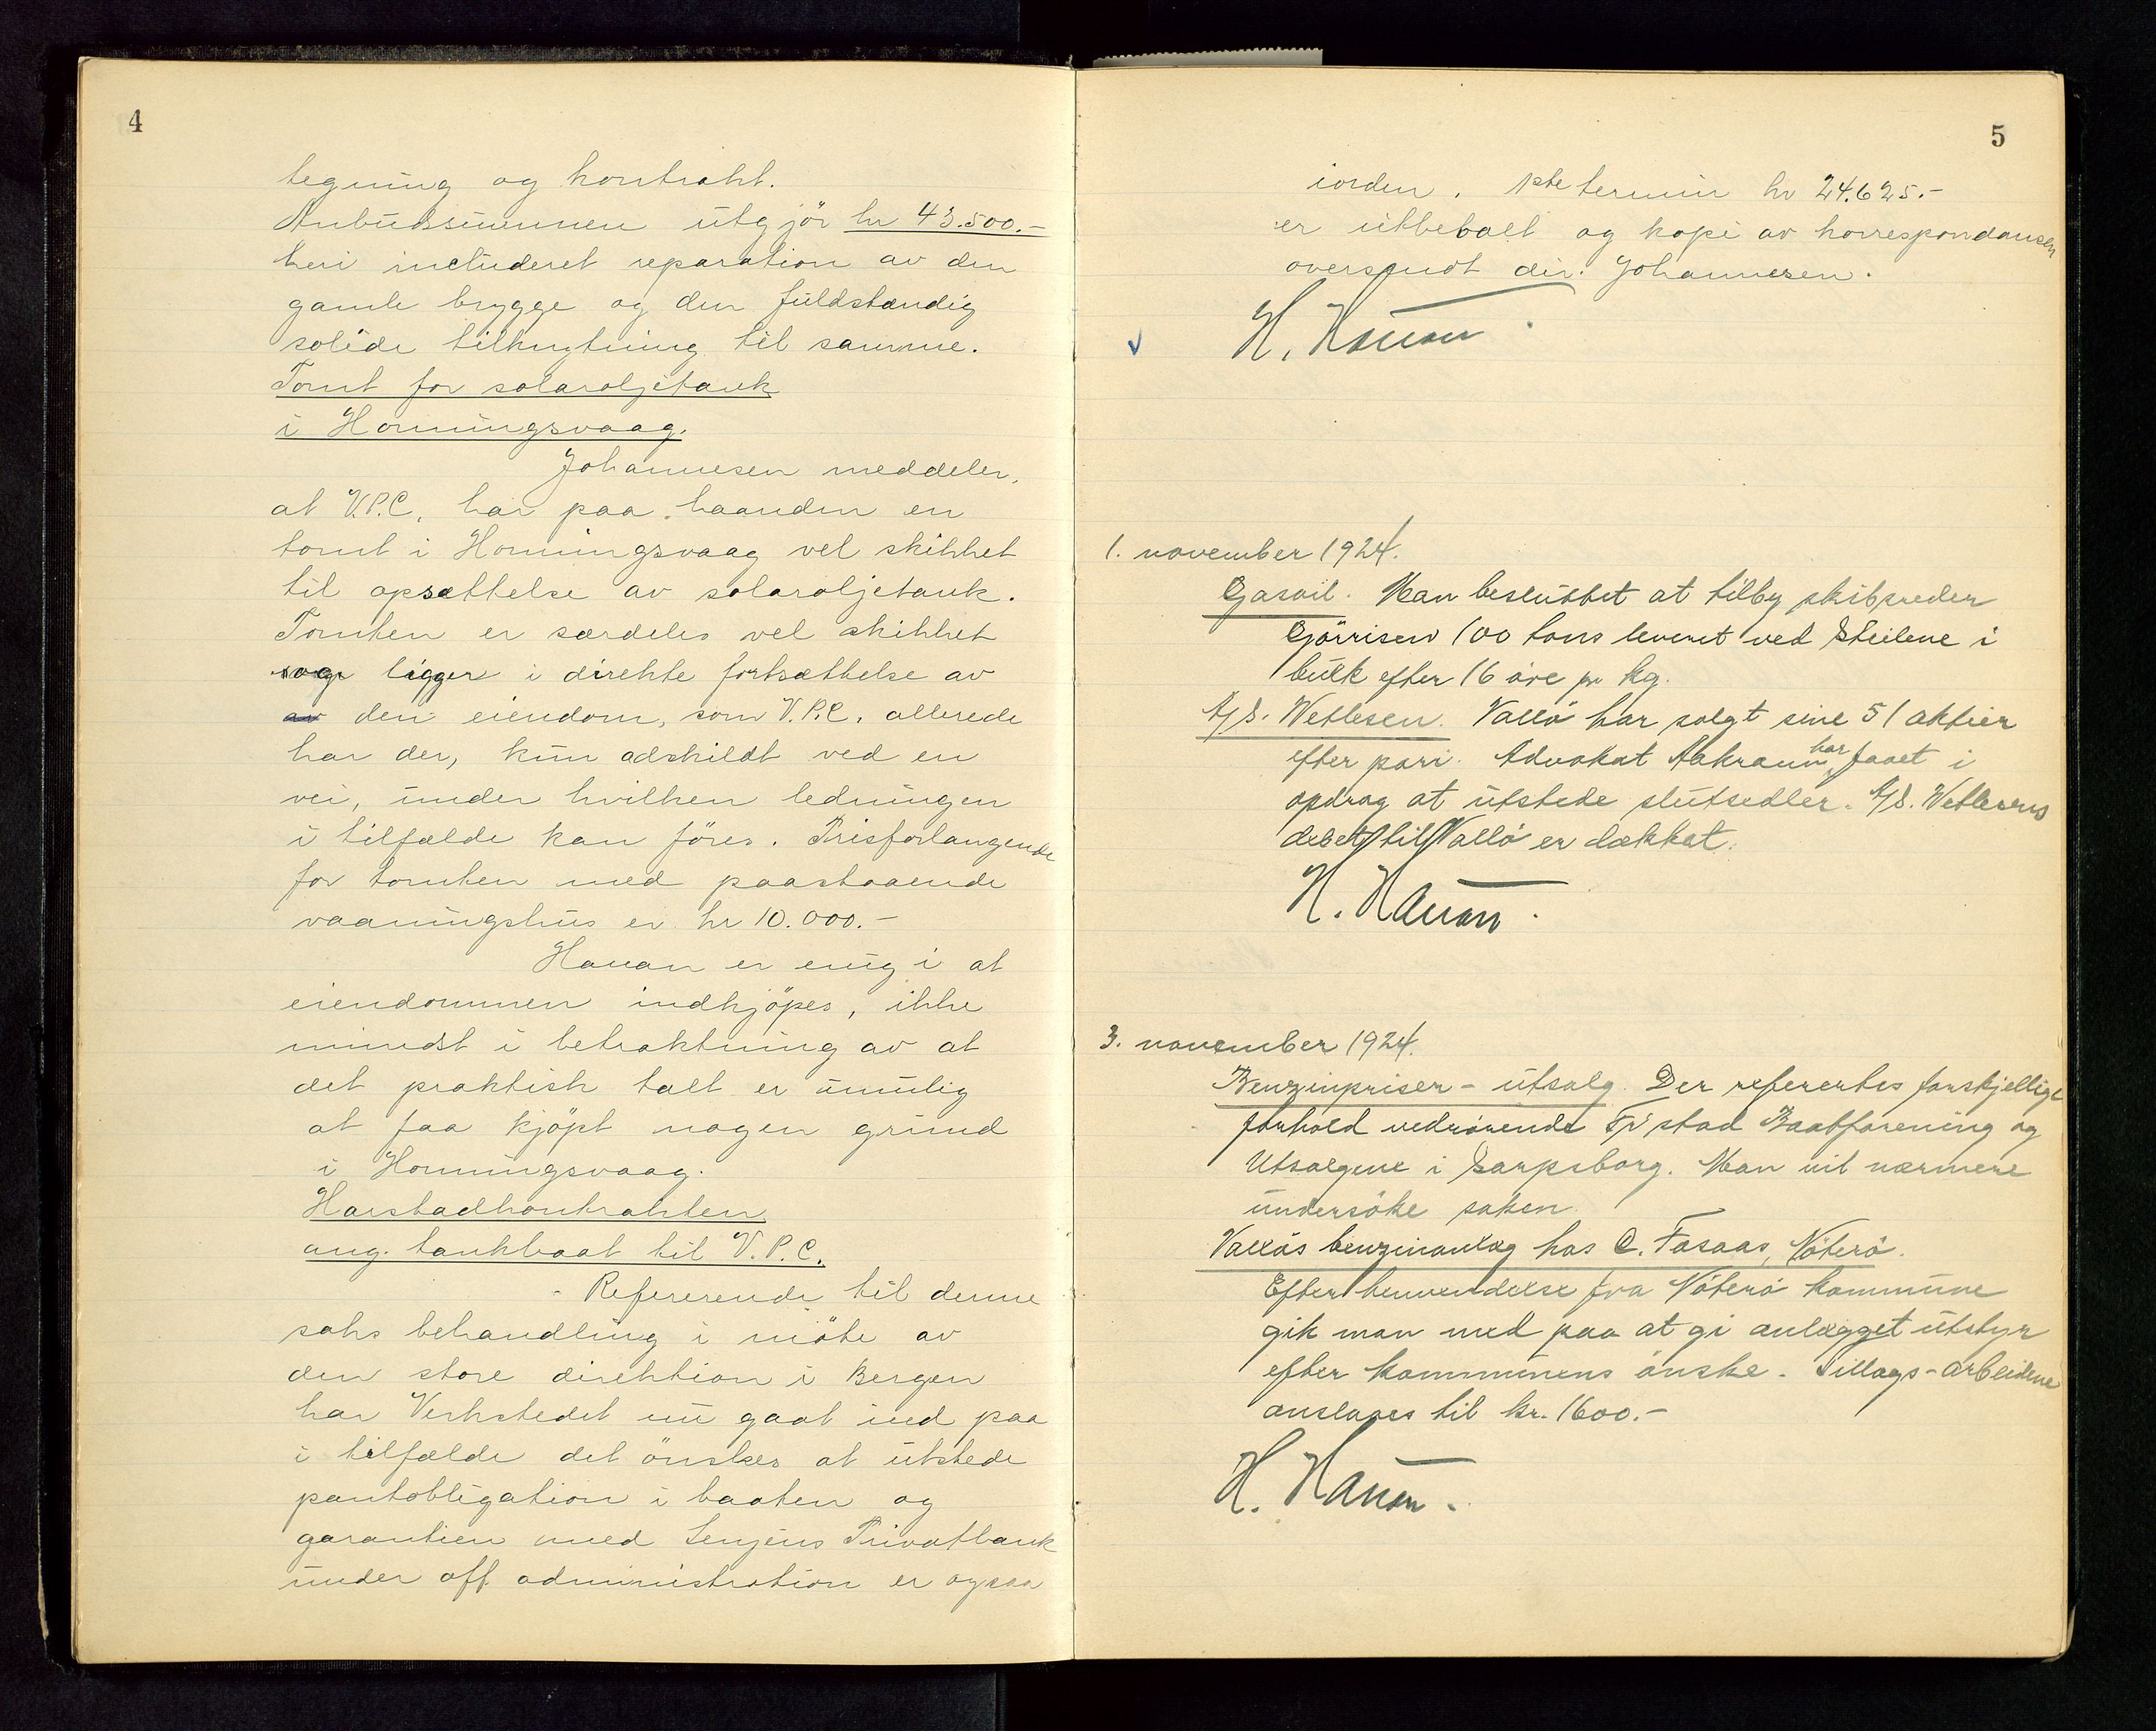 4
tegning og kontrakt.
Anbudssummen utgjör kr 43.500.-
heri includeret reparation av den
gamle brygge og den fuldstændig
solide tilknytning til samme.
Tomt for solaroljetank
i Honningsvaag.
Johannesen meddeler,
at V.P.C. har paa haanden en
tomt i Honningsvaag vel skikket
til opsættelse av solaroljetank.
Tomten er særdeles vel skikket
og ligger i direkte fortsættelse av
av den eiendom, som V.P.C. allerede
har der, kun adskildt ved en
vei, under hvilken ledningen
i tilfælde kan föres. Prisforlangende
for tomten med paastaaende
vaaningshus er kr 10.000.-
Hauan er enig i at
eiendommen indkjöpes, ikke
mindst i betraktning av at
det praktisk talt er umulig
at faa kjöpt nogen grund
i Honningsvaag.
Harstadkontrakten
ang. tankbaat til V.P.C.
Refererende til denne
saks behandling i möte av
den store direktion i Bergen
har Verkstedet nu gaat ind paa
i tilfælde det önskes at utstede
pantobligation i baaten og
garantien med Senjens Privatbank
under off. administration er ogsaa
5
iorden. 1ste termin kr 24.625.-
er utbetalt og kopi av korrespondansen
oversendt dir. Johannesen.
H. Hauan.
1. november 1924.
Gasoil. Man besluttet at tilby skibsreder
Gjörrisen 100 tons leveret ved Steilene i
bulk efter 16 öre pr kg.
A/S. Wetlesen. Vallö har solgt sine 51 aktier
efter pari. Advokat Aakrann har faaet i
opdrag at utstede slutsedler. A/S. Wetlesens
debet til Vallö er dækket.
H. Hauan.
3. november 1924.
Benzinpriser - utsalg. Der refererites forskjellige
forhold vedrörende Fr'stad Baatforening og
Utsalgene i Sarpsborg. Man vil nærmere
undersöke saken.
Vallös benzinanlæg hos C. Fasaas, Nöterö.
Efter henvendelse fra Nöterö kommune
gik man med paa at gi anlægget utstyr
efter kommunens önske. Tillægs-arbeidene
anslaaes til kr. 1600.-
H. Hauan.